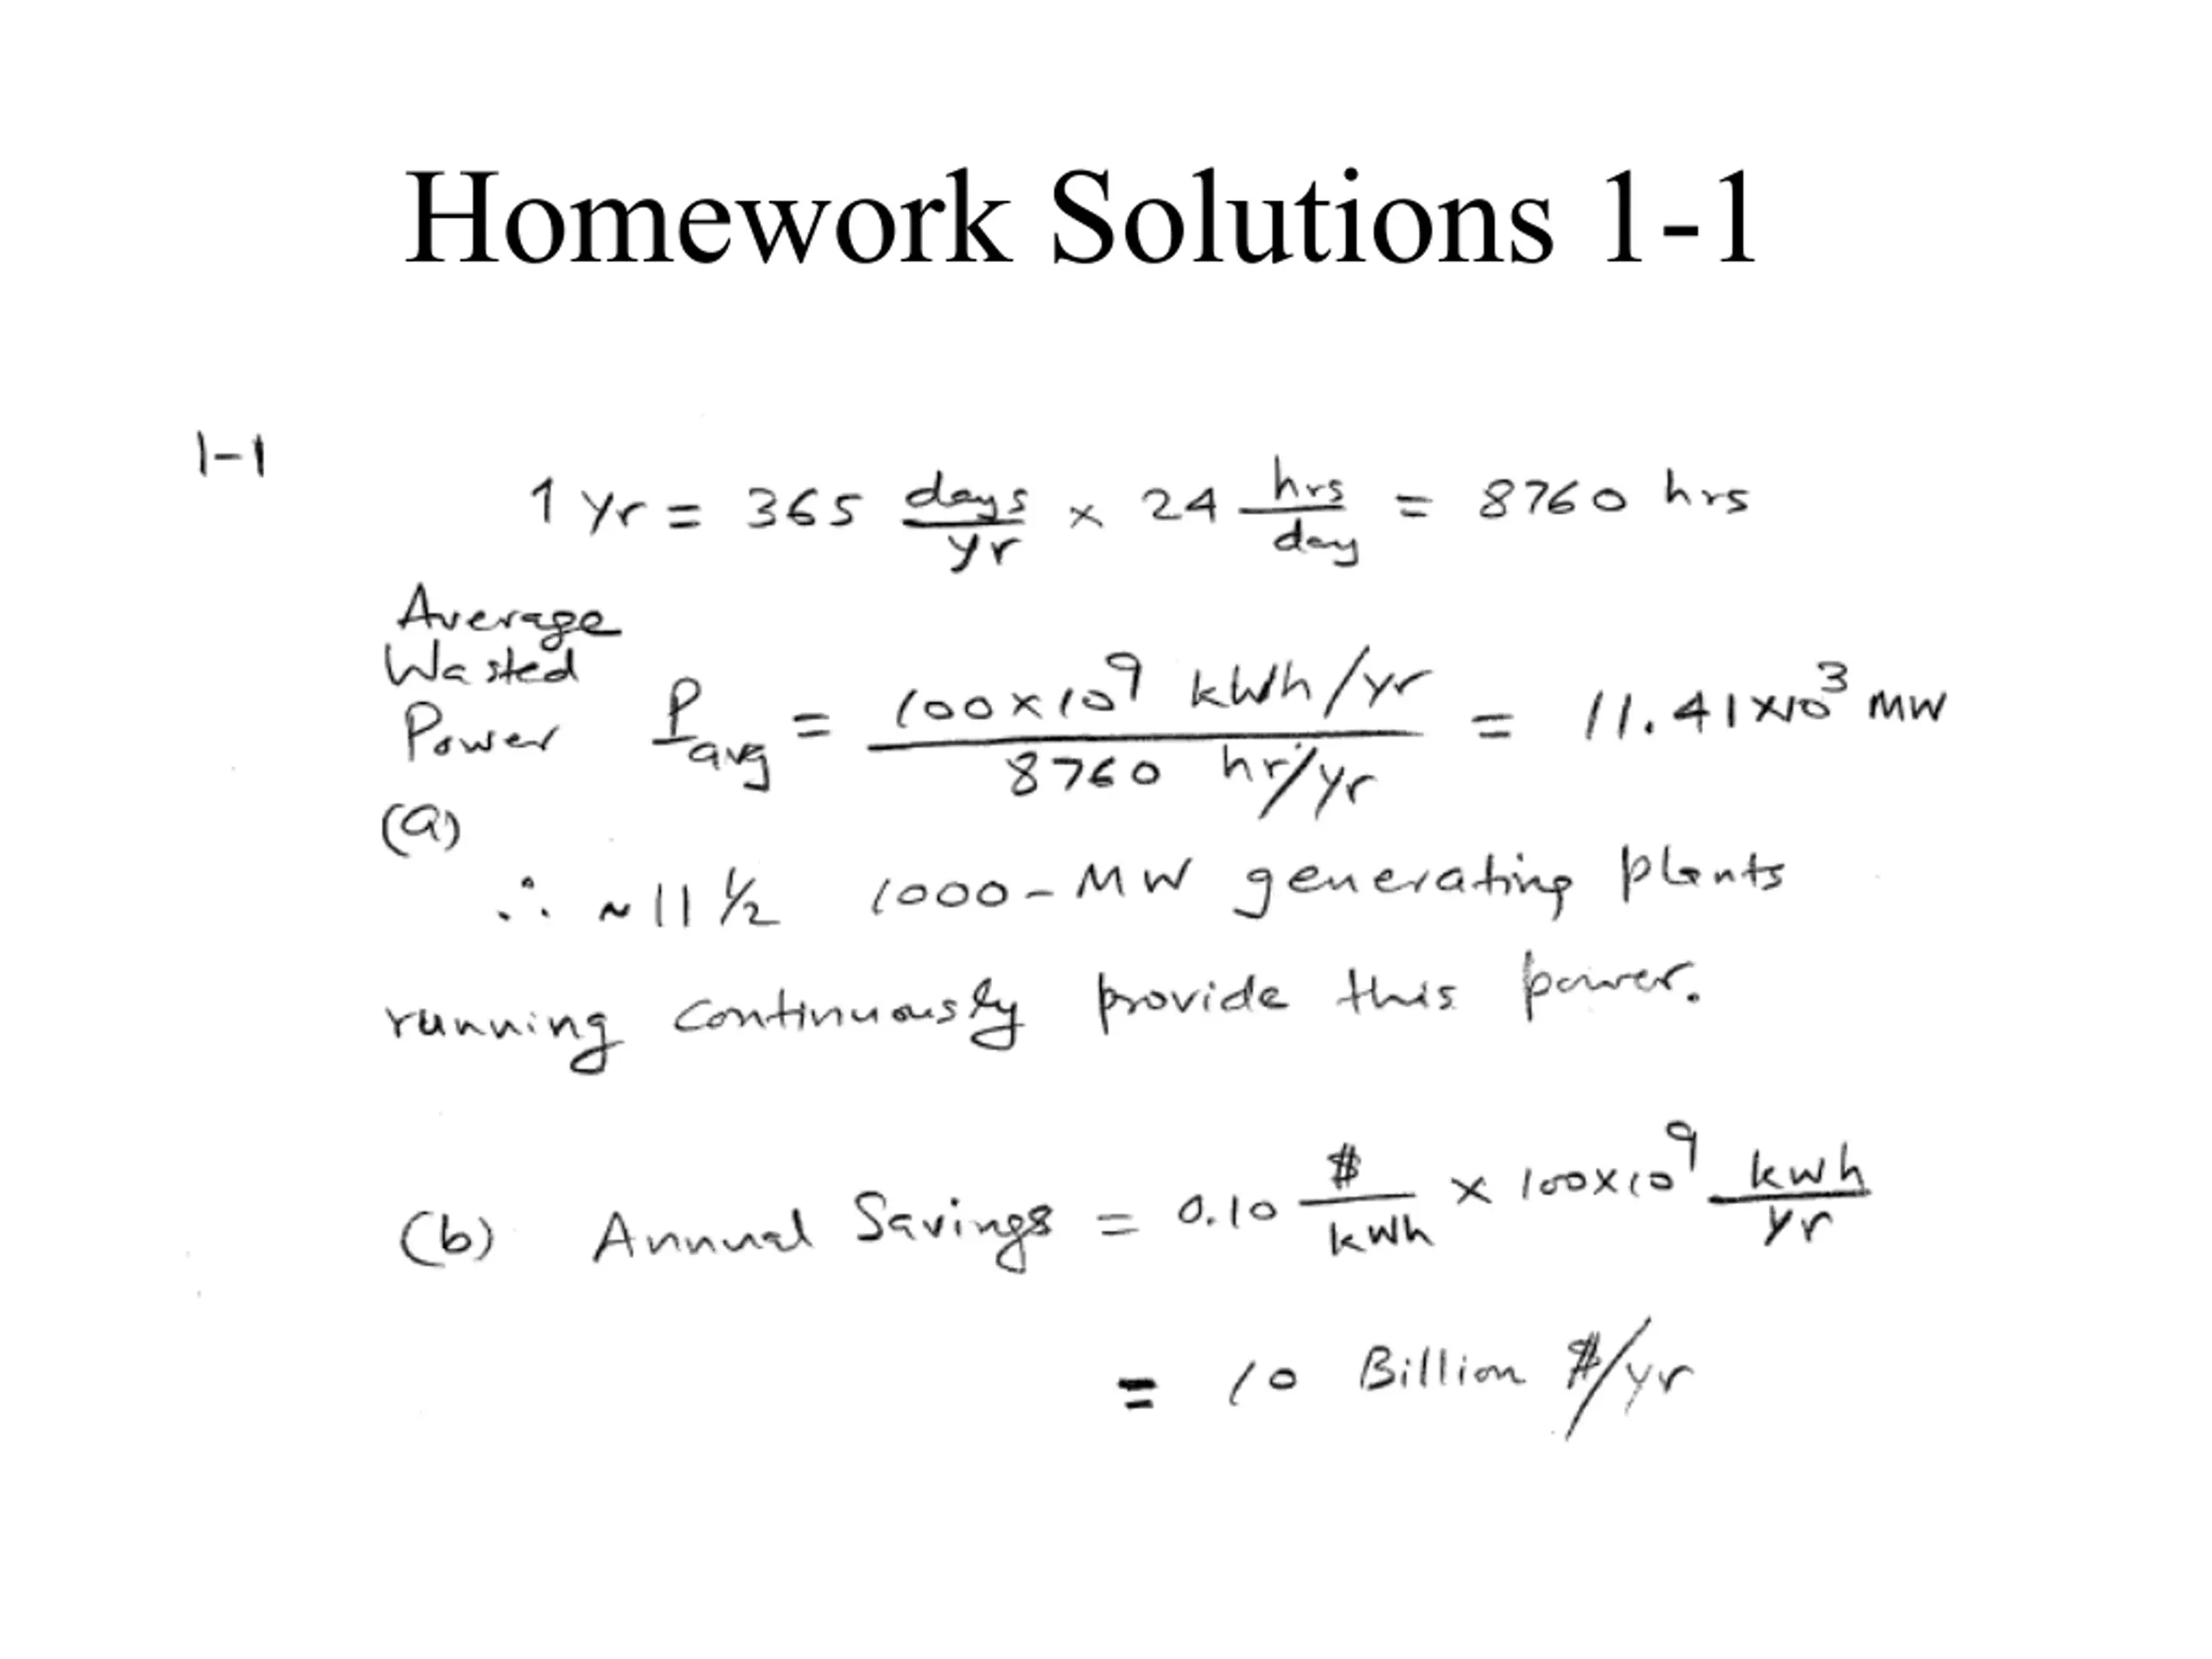 Homework Solutions 1-1
1-1
1 Yr = 365 days/yr × 24 hrs/day = 8760 hrs
Average
Wasted
Power P_avg = 100×10^9 kWh/yr / 8760 hr/yr = 11.41×10^3 MW
(a)
∴ ~11 1/2 1000-MW generating plants
running continuously provide this power.
(b) Annual Savings = 0.10 $/kWh × 100×10^9 kWh/yr
= 10 Billion $/yr